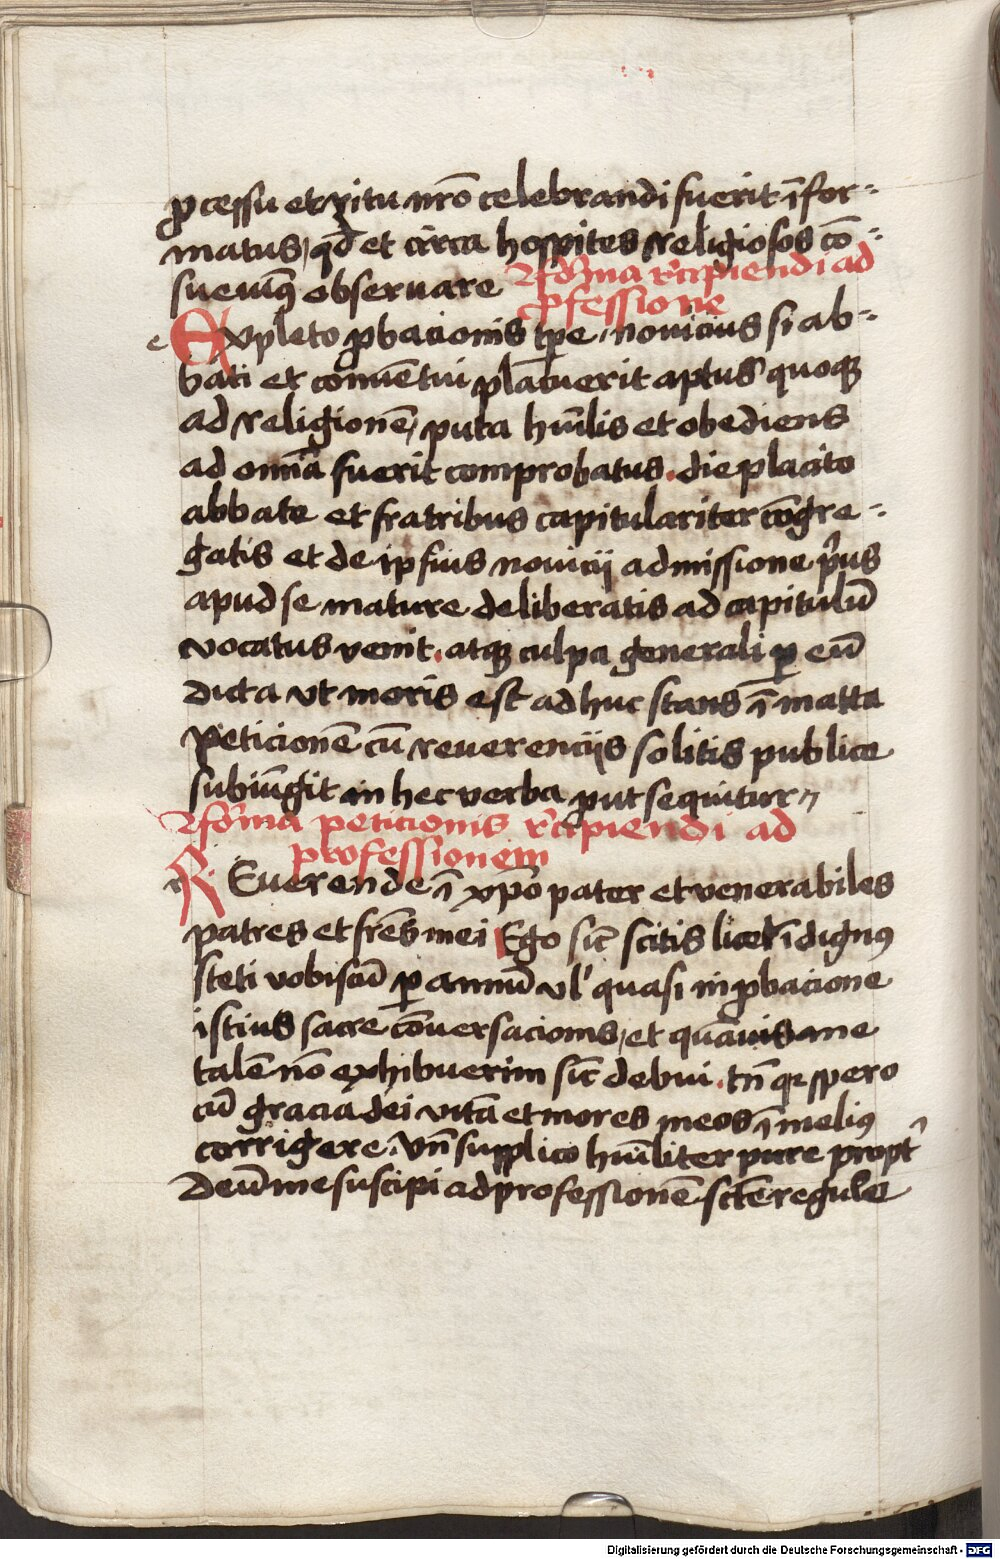 ꝓcessu et ritu nr̄o celebrandi fuerit īfor-
matus, qd̄ et circa hospites religiosos cō-
sueuimꝰ observare
Forma recipiendi ad
ꝓfessionē
e Expleto ꝓbacionis tp̄e, nouicius si ab-
bati et conuētui placuerit aptus quoqꝫ
ad religionē, puta hūilis et obediens
ad om̄ia fuerit comprobatus. die placito
abbate et fratribus capitulariter cōgre-
gatis et de ipsius nouicij admissione prius
apud se mature deliberatis ad capitulū
vocatus venit. atqꝫ culpa generali ꝑ eū
dicta vt moris est adhuc stans ī matta
peticionē cū reuerencijs solitis publice
subiūgit in hec verba ꝓut sequitur
Forma peticionis recipiendi ad
professionem
r REuerende ī xp̄o pater et venerabiles
patres et fr̄es mei Ego sic̄ scitis licet īdignꝰ
steti vobiscū ꝑ annū vl' quasi in ꝓbacione
istius sacre cōuersacionis, et quāuis me
talē nō exhibuerim sic̄ debui. tn̄ qꝛ spero
cū gracia dei vitā et mores meos ī meliꝰ
corrigere. Vn̄ supplico hūiliter pure propt'
Deū me suscipi ad professionē sctē regule
Digitalisierung gefördert durch die Deutsche Forschungsgemeinschaft - DFG